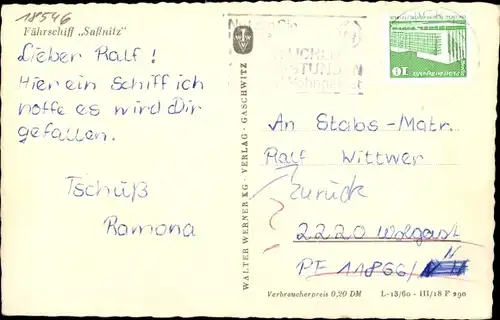 18546
Fährschiff „Saßnitz"
Lieber Ralf!
Hier ein Schiff ich
hoffe es wird Dir
gefallen.
Tschüß
Ramona
WALTER WERNER KG · VERLAG · GASCHWITZ
STUNDEN
10
An Stabs-Matr.
Ralf Wittwer
Zurück
2220 Wolgast
PF 11866/
Verbraucherpreis 0,20 DM L-15/60 - III/18 F 290